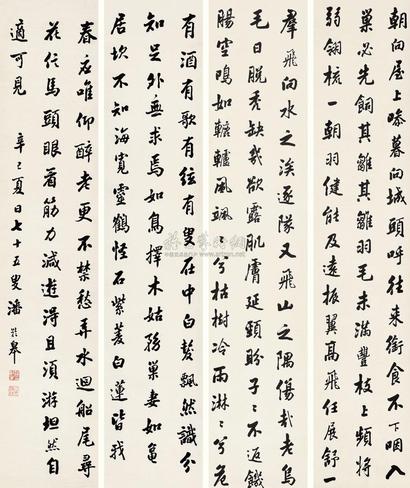 朝向屋上噪暮向城頭呼往來銜食不下咽入
巢必先飼其雛其雛羽毛未滿豐枝上頻將
弱翎梳一朝羽健能及遠振翼高飛任展舒一
羣飛向水之涘逐隊又飛山之隅傷哉老烏
毛日脫秃缺幾欲露肌膚延頸盼子〻不返饑
腸空鳴如轆轤風颯〻兮枯樹冷雨淋〻兮危
有酒有歌有弦有叟在中白髮飄然識分
知足外無求焉如鳥擇木姑務巢安如龜
居坎不知海寬靈鶴怪石紫菱白蓮皆我
春應唯仰醉老更不禁愁弄水迴船尾尋
花信馬頭眼看筋力減遊得且須游坦然自
適可見 辛巳夏日七十五叟潘齡皋